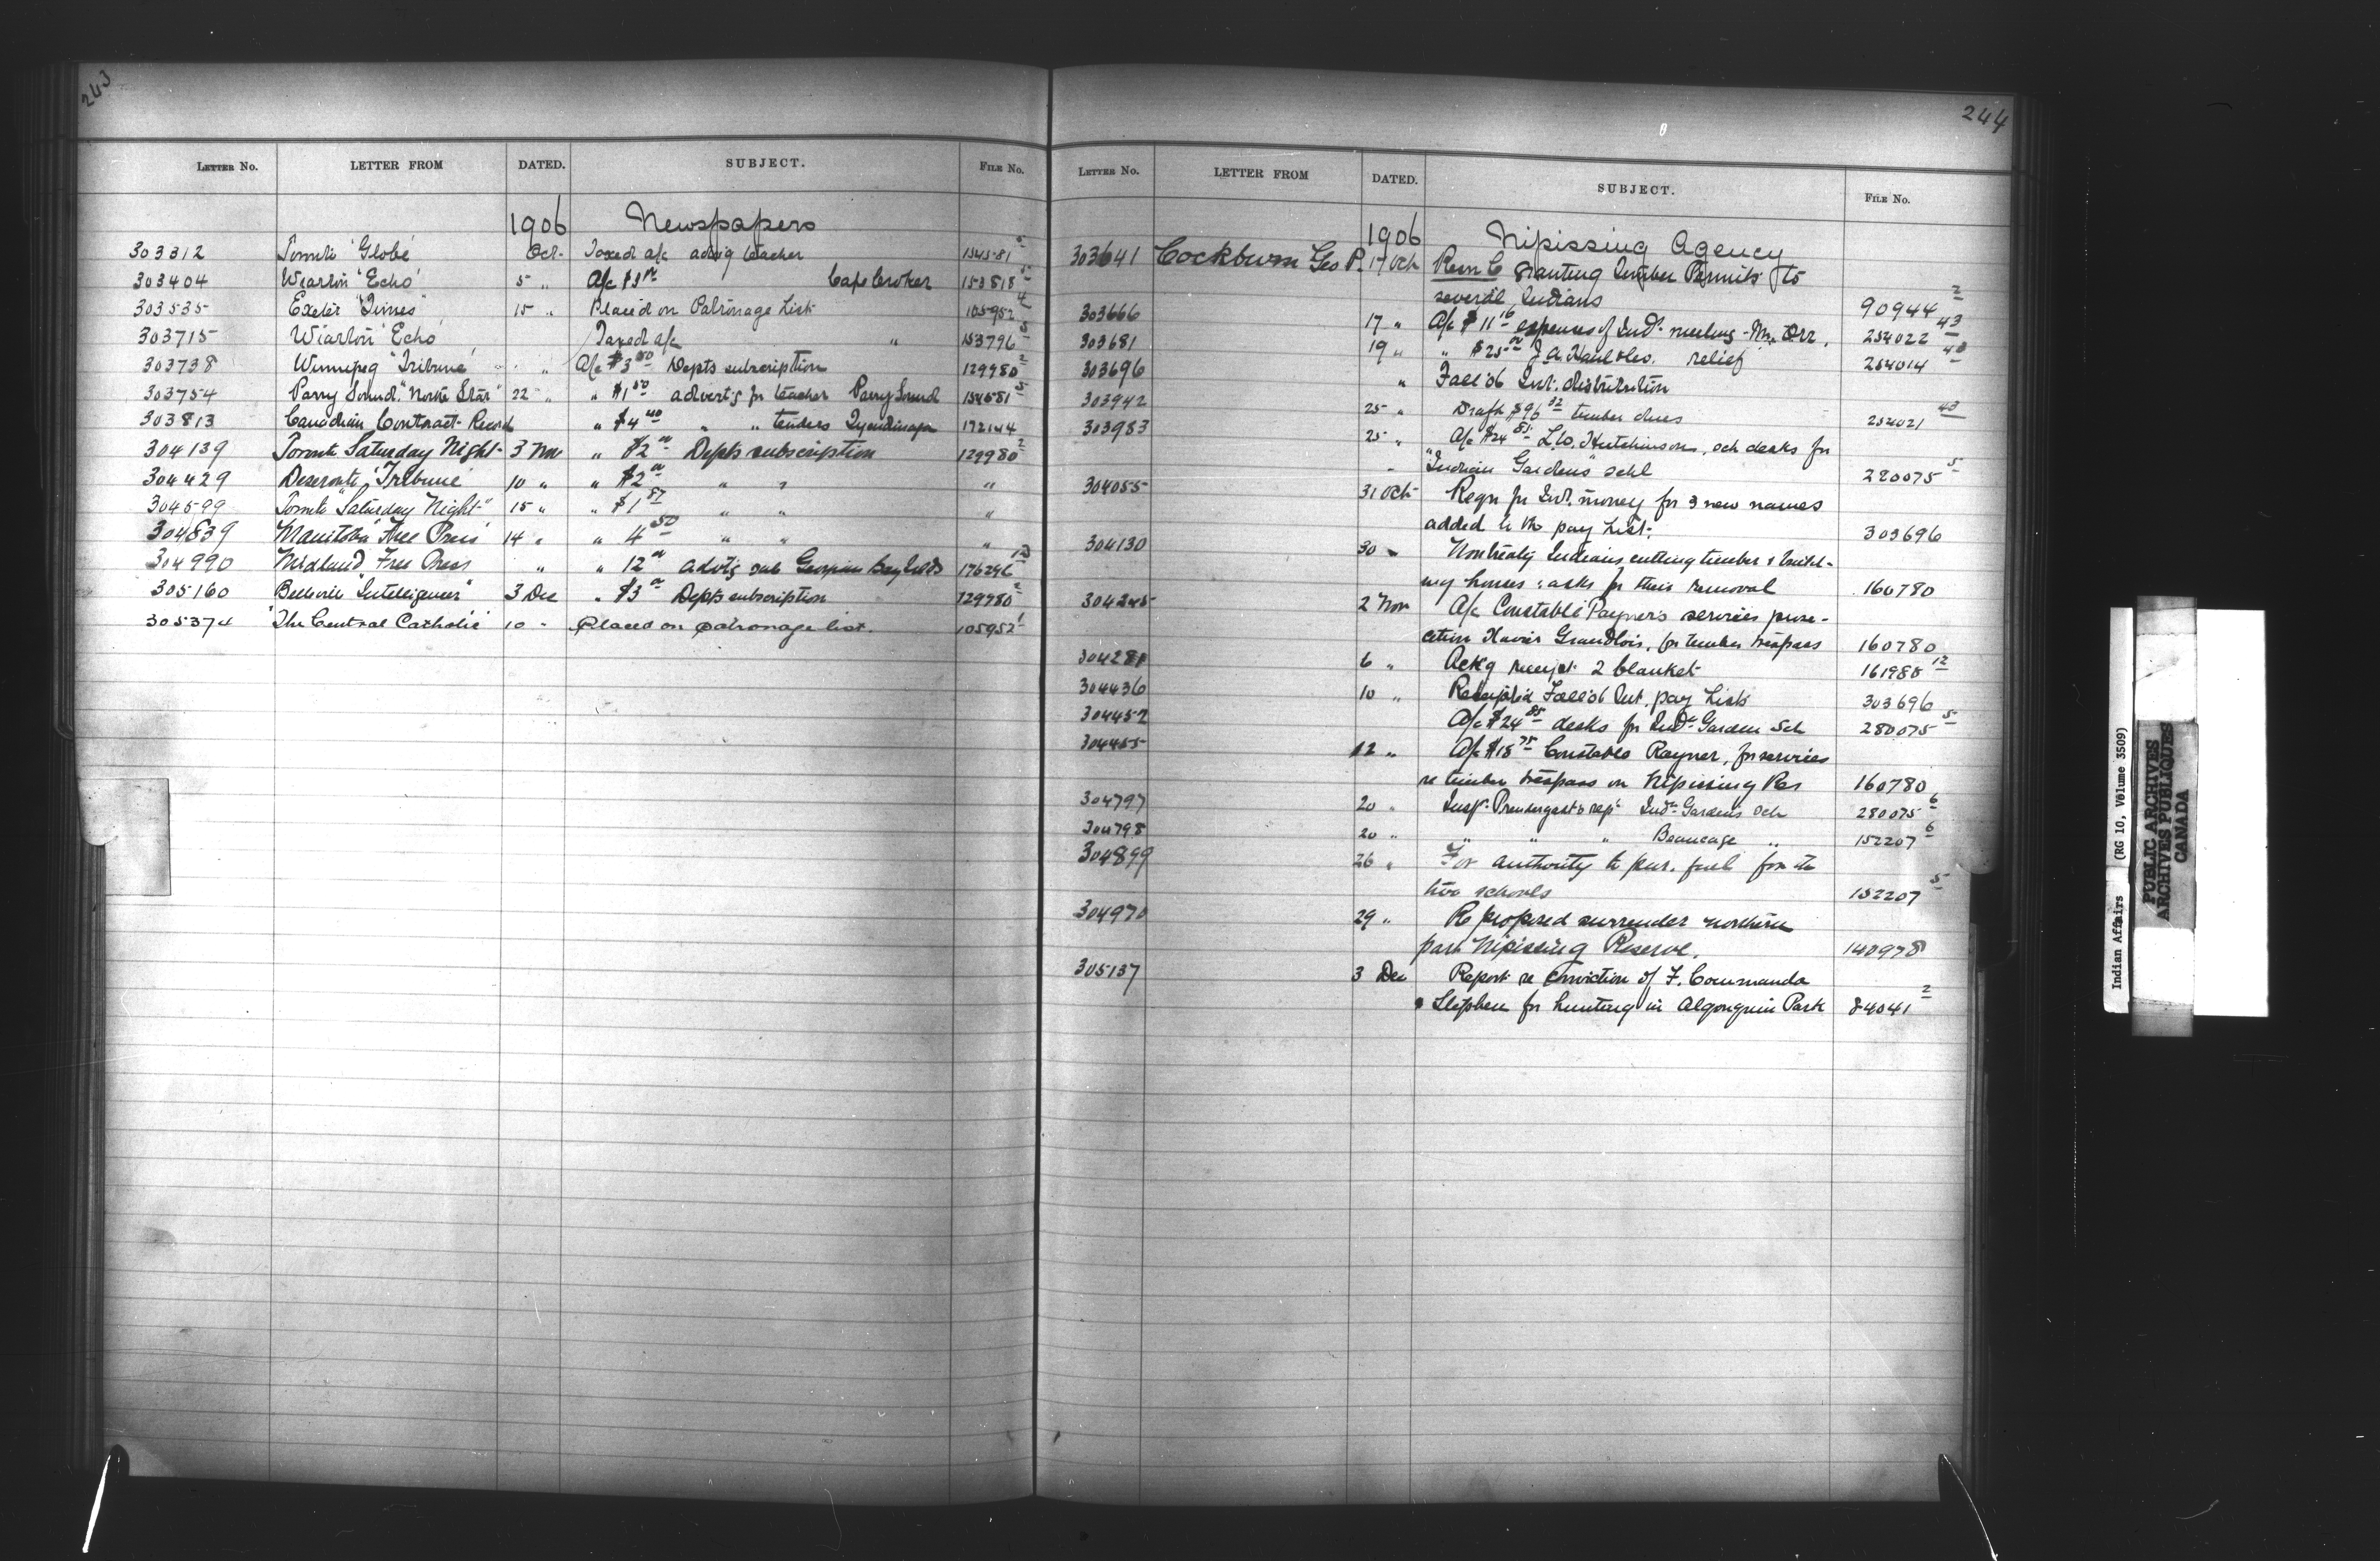 243
LETTER No. LETTER FROM DATED. SUBJECT. FILE No.
1906 Newspapers
303312 Toronto 'Globe' Oct. Taxed a/c advtg teacher 154581 5
303404 Wiarton 'Echo' 5 " A/c $3 00 Cape Croker 153818 5
303535 Exeter "Times" 15 " Placed on Patronage List 105952 4
303715 Wiarton 'Echo' Taxed a/c " 153796 5
303738 Winnipeg "Tribune" " A/c $3 50 Depts subscription 129980 2
303754 Parry Sound "North Star" 22 " " $1 50 advert'g for teacher Parry Sound 154581 5
303813 Canadian Contract Record " $4 40 " " tenders Tyendinaga 172144
304139 Toronto Saturday Night 3 Nov " $2 00 Depts subscription 129980 2
304429 Deseronto 'Tribune' 10 " " $2 00 " " "
304599 Toronto "Saturday Night" 15 " " $1 87 " " "
304839 Manitoba 'Free Press' 14 " " 4 50 " " "
304990 Midland Free Press " " 12 00 advt'g sale Georgian Bay Islds 176246 12
305160 Belleville "Intelligencer" 3 Dec " $3 00 Depts subscription 129980 2
305374 "The Central Catholic" 10 " Placed on patronage list. 105952 1
244
LETTER No. LETTER FROM DATED. SUBJECT. FILE No.
1906 Nipissing Agency
303641 Cockburn Geo P. 17 Oct Granting timber Permits to
several Indians 90944 2
303666 17 " A/c $11 16 expenses of Ind. meeting - Mr. Orr. 254022 43
303681 19 " " $25 00 J.A. relief 254014 40
303696 " Fall '06 Int. distribution
303942 25 " Draft $96 32 timber dues 254021 43
303983 25 " A/c $24 85 Hutchinson, sch desks for
"Indian Gardens" schl 280075 5
304055 31 Oct Reqn for Int. money for 3 new names
added to the pay List. 303696
304130 30 " Nontreaty Indians cutting timber & build-
ing houses: asks for their removal 160780
304245 2 Nov A/c Constable Rayner's services prose-
cution Xavier Grandlois, for timber trespass 160780
304281 6 " Ack'g receipt 2 blanket 161980 12
304436 10 " Receipted Fall '06 Int. pay Lists 303696
304452 A/c $24 85 desks for Ind. Garden Sch 280075 5
304455 12 " A/c $18 75 Constable Rayner, for services
re timber trespass on Nipissing Res 160780
304797 20 " Insp. Prendergast's rep. Ind. Gardens Sch 280075 6
304798 20 " " " " Beaucage " 152207 6
304899 26 " For authority to pur. fuel for the
two schools 152207 5
304970 29 " Re proposed surrender northern
part Nipissing Reserve. 140978
305137 3 Dec Report re conviction of F. Commanda
& Stephen for hunting in Algonquin Park 84041 2
Indian Affairs (RG 10, Volume 3509)
PUBLIC ARCHIVES
ARCHIVES PUBLIQUES
CANADA